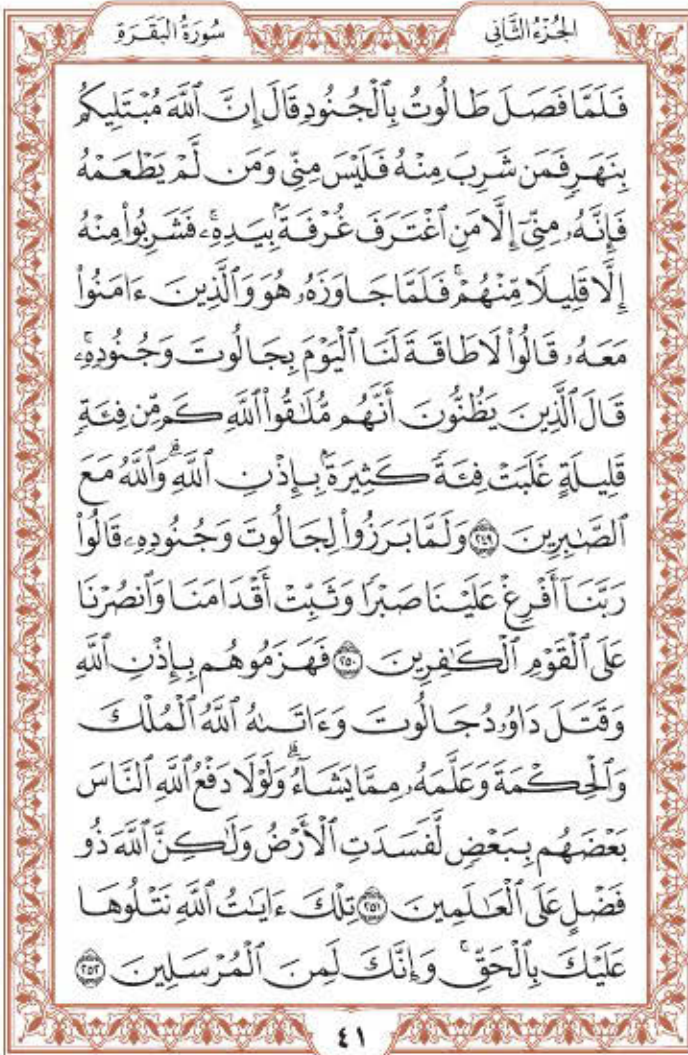 الجُزْءُ الثَّانِي
سُورَةُ البَقَرَةِ
فَلَمَّا فَصَلَ طَالُوتُ بِٱلْجُنُودِ قَالَ إِنَّ ٱللَّهَ مُبْتَلِيكُم
بِنَهَرٍ فَمَن شَرِبَ مِنْهُ فَلَيْسَ مِنِّي وَمَن لَّمْ يَطْعَمْهُ
فَإِنَّهُۥ مِنِّيٓ إِلَّا مَنِ ٱغْتَرَفَ غُرْفَةًۢ بِيَدِهِۦۚ فَشَرِبُوا۟ مِنْهُ
إِلَّا قَلِيلًا مِّنْهُمْۚ فَلَمَّا جَاوَزَهُۥ هُوَ وَٱلَّذِينَ ءَامَنُوا۟
مَعَهُۥ قَالُوا۟ لَا طَاقَةَ لَنَا ٱلْيَوْمَ بِجَالُوتَ وَجُنُودِهِۦۚ
قَالَ ٱلَّذِينَ يَظُنُّونَ أَنَّهُم مُّلَٰقُوا۟ ٱللَّهِ كَم مِّن فِئَةٍ
قَلِيلَةٍ غَلَبَتْ فِئَةً كَثِيرَةًۢ بِإِذْنِ ٱللَّهِۗ وَٱللَّهُ مَعَ
ٱلصَّٰبِرِينَ ۝٢٤٩ وَلَمَّا بَرَزُوا۟ لِجَالُوتَ وَجُنُودِهِۦ قَالُوا۟
رَبَّنَآ أَفْرِغْ عَلَيْنَا صَبْرًا وَثَبِّتْ أَقْدَامَنَا وَٱنصُرْنَا
عَلَى ٱلْقَوْمِ ٱلْكَٰفِرِينَ ۝٢٥٠ فَهَزَمُوهُم بِإِذْنِ ٱللَّهِ
وَقَتَلَ دَاوُۥدُ جَالُوتَ وَءَاتَىٰهُ ٱللَّهُ ٱلْمُلْكَ
وَٱلْحِكْمَةَ وَعَلَّمَهُۥ مِمَّا يَشَآءُۗ وَلَوْلَا دَفْعُ ٱللَّهِ ٱلنَّاسَ
بَعْضَهُم بِبَعْضٍ لَّفَسَدَتِ ٱلْأَرْضُ وَلَٰكِنَّ ٱللَّهَ ذُو
فَضْلٍ عَلَى ٱلْعَٰلَمِينَ ۝٢٥١ تِلْكَ ءَايَٰتُ ٱللَّهِ نَتْلُوهَا
عَلَيْكَ بِٱلْحَقِّۚ وَإِنَّكَ لَمِنَ ٱلْمُرْسَلِينَ ۝٢٥٢
٤١